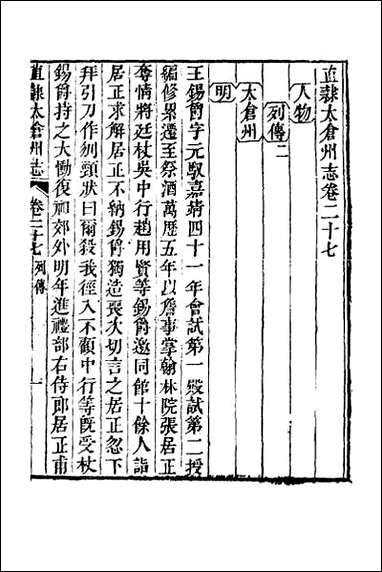 直隸太倉州志卷二十七
人物
列傳二
太倉州
明
王錫爵字元馭嘉靖四十一年會試第一殿試第二授
編修累遷至祭酒萬歷五年以詹事掌翰林院張居正
奪情將廷杖吳中行趙用賢等錫爵邀同館十餘人詣
居正求解居正不納錫爵獨造喪次切言之居正忽下
拜引刀作刎頸狀曰爾殺我徑入不顧中行等旣受杖
錫爵持之大慟復祖郊外明年進禮部右侍郎居正甫
直隸太倉州志
卷二十七 列傳
一